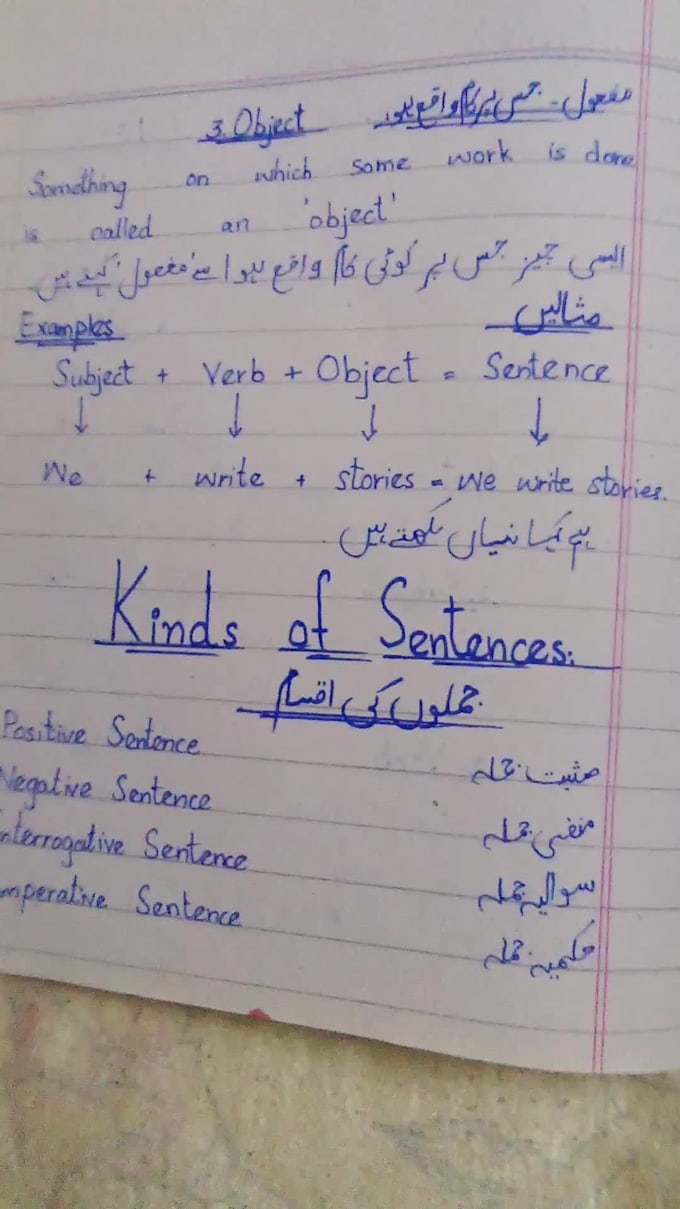 3. Object مفعول۔ جس پر کام واقع ہو۔
Something on which some work is done
is called an 'object'
ایسی چیز جس پر کوئی کام واقع ہو اسے 'مفعول' کہتے ہیں۔
Examples مثالیں
Subject + Verb + Object = Sentence
↓ ↓ ↓ ↓
We + write + stories = We write stories.
ہم کہانیاں لکھتے ہیں
Kinds of Sentences:
جملوں کی اقسام
Positive Sentence مثبت جملہ
Negative Sentence منفی جملہ
nterrogative Sentence سوالیہ جملہ
mperative Sentence حکمیہ جملہ